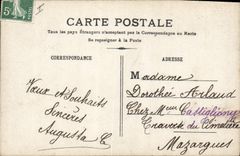 CARTE POSTALE
Tous les pays Étrangers n'acceptent pas la Correspondance au Recto
Se renseigner à la Poste
CORRESPONDANCE
ADRESSE
Voeux et Souhaits
Sincères
Augusta C
Madame
Dorothée Arlaud
Chez Mme Castiglione
Traverse du Cimetière
Mazargues
5